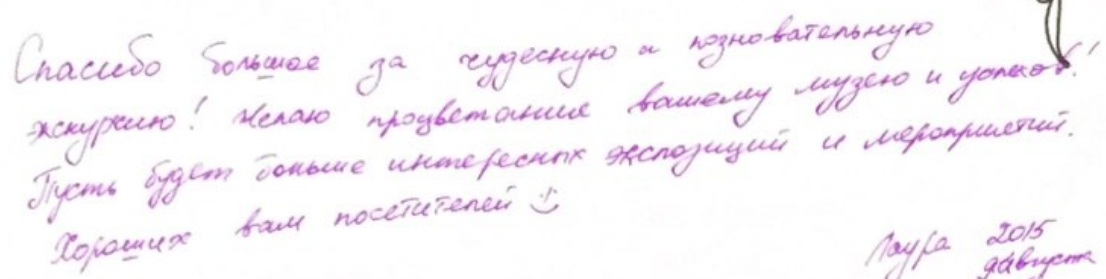 Спасибо большое за чудесную и позновательную
экскурсию! Желаю процветания вашему музею и успехов!
Пусть будет больше интересных экспозиций и мероприятий.
Хороших вам посетителей :)
Лаура 2015
9 августа